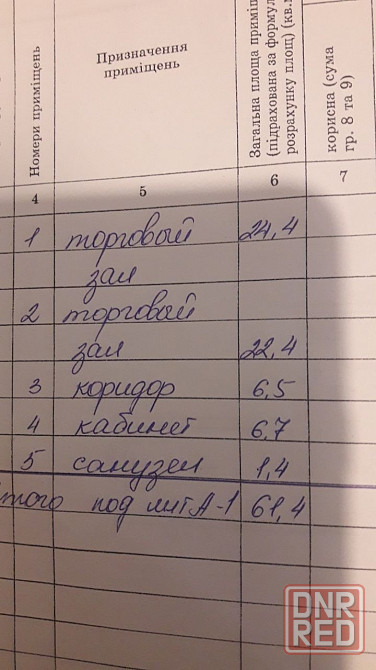 Номери приміщень
Призначення
приміщень
Загальна площа приміщ
(підрахована за формул
розрахунку площ) (кв.м
корисна (сума
гр. 8 та 9)
4 5 6 7
1 торговый 24,4
зал
2 торговый
зал 22,4
3 коридор 6,5
4 кабинет 6,7
5 санузел 1,4
того под лит А-1 61,4
DNR
RED